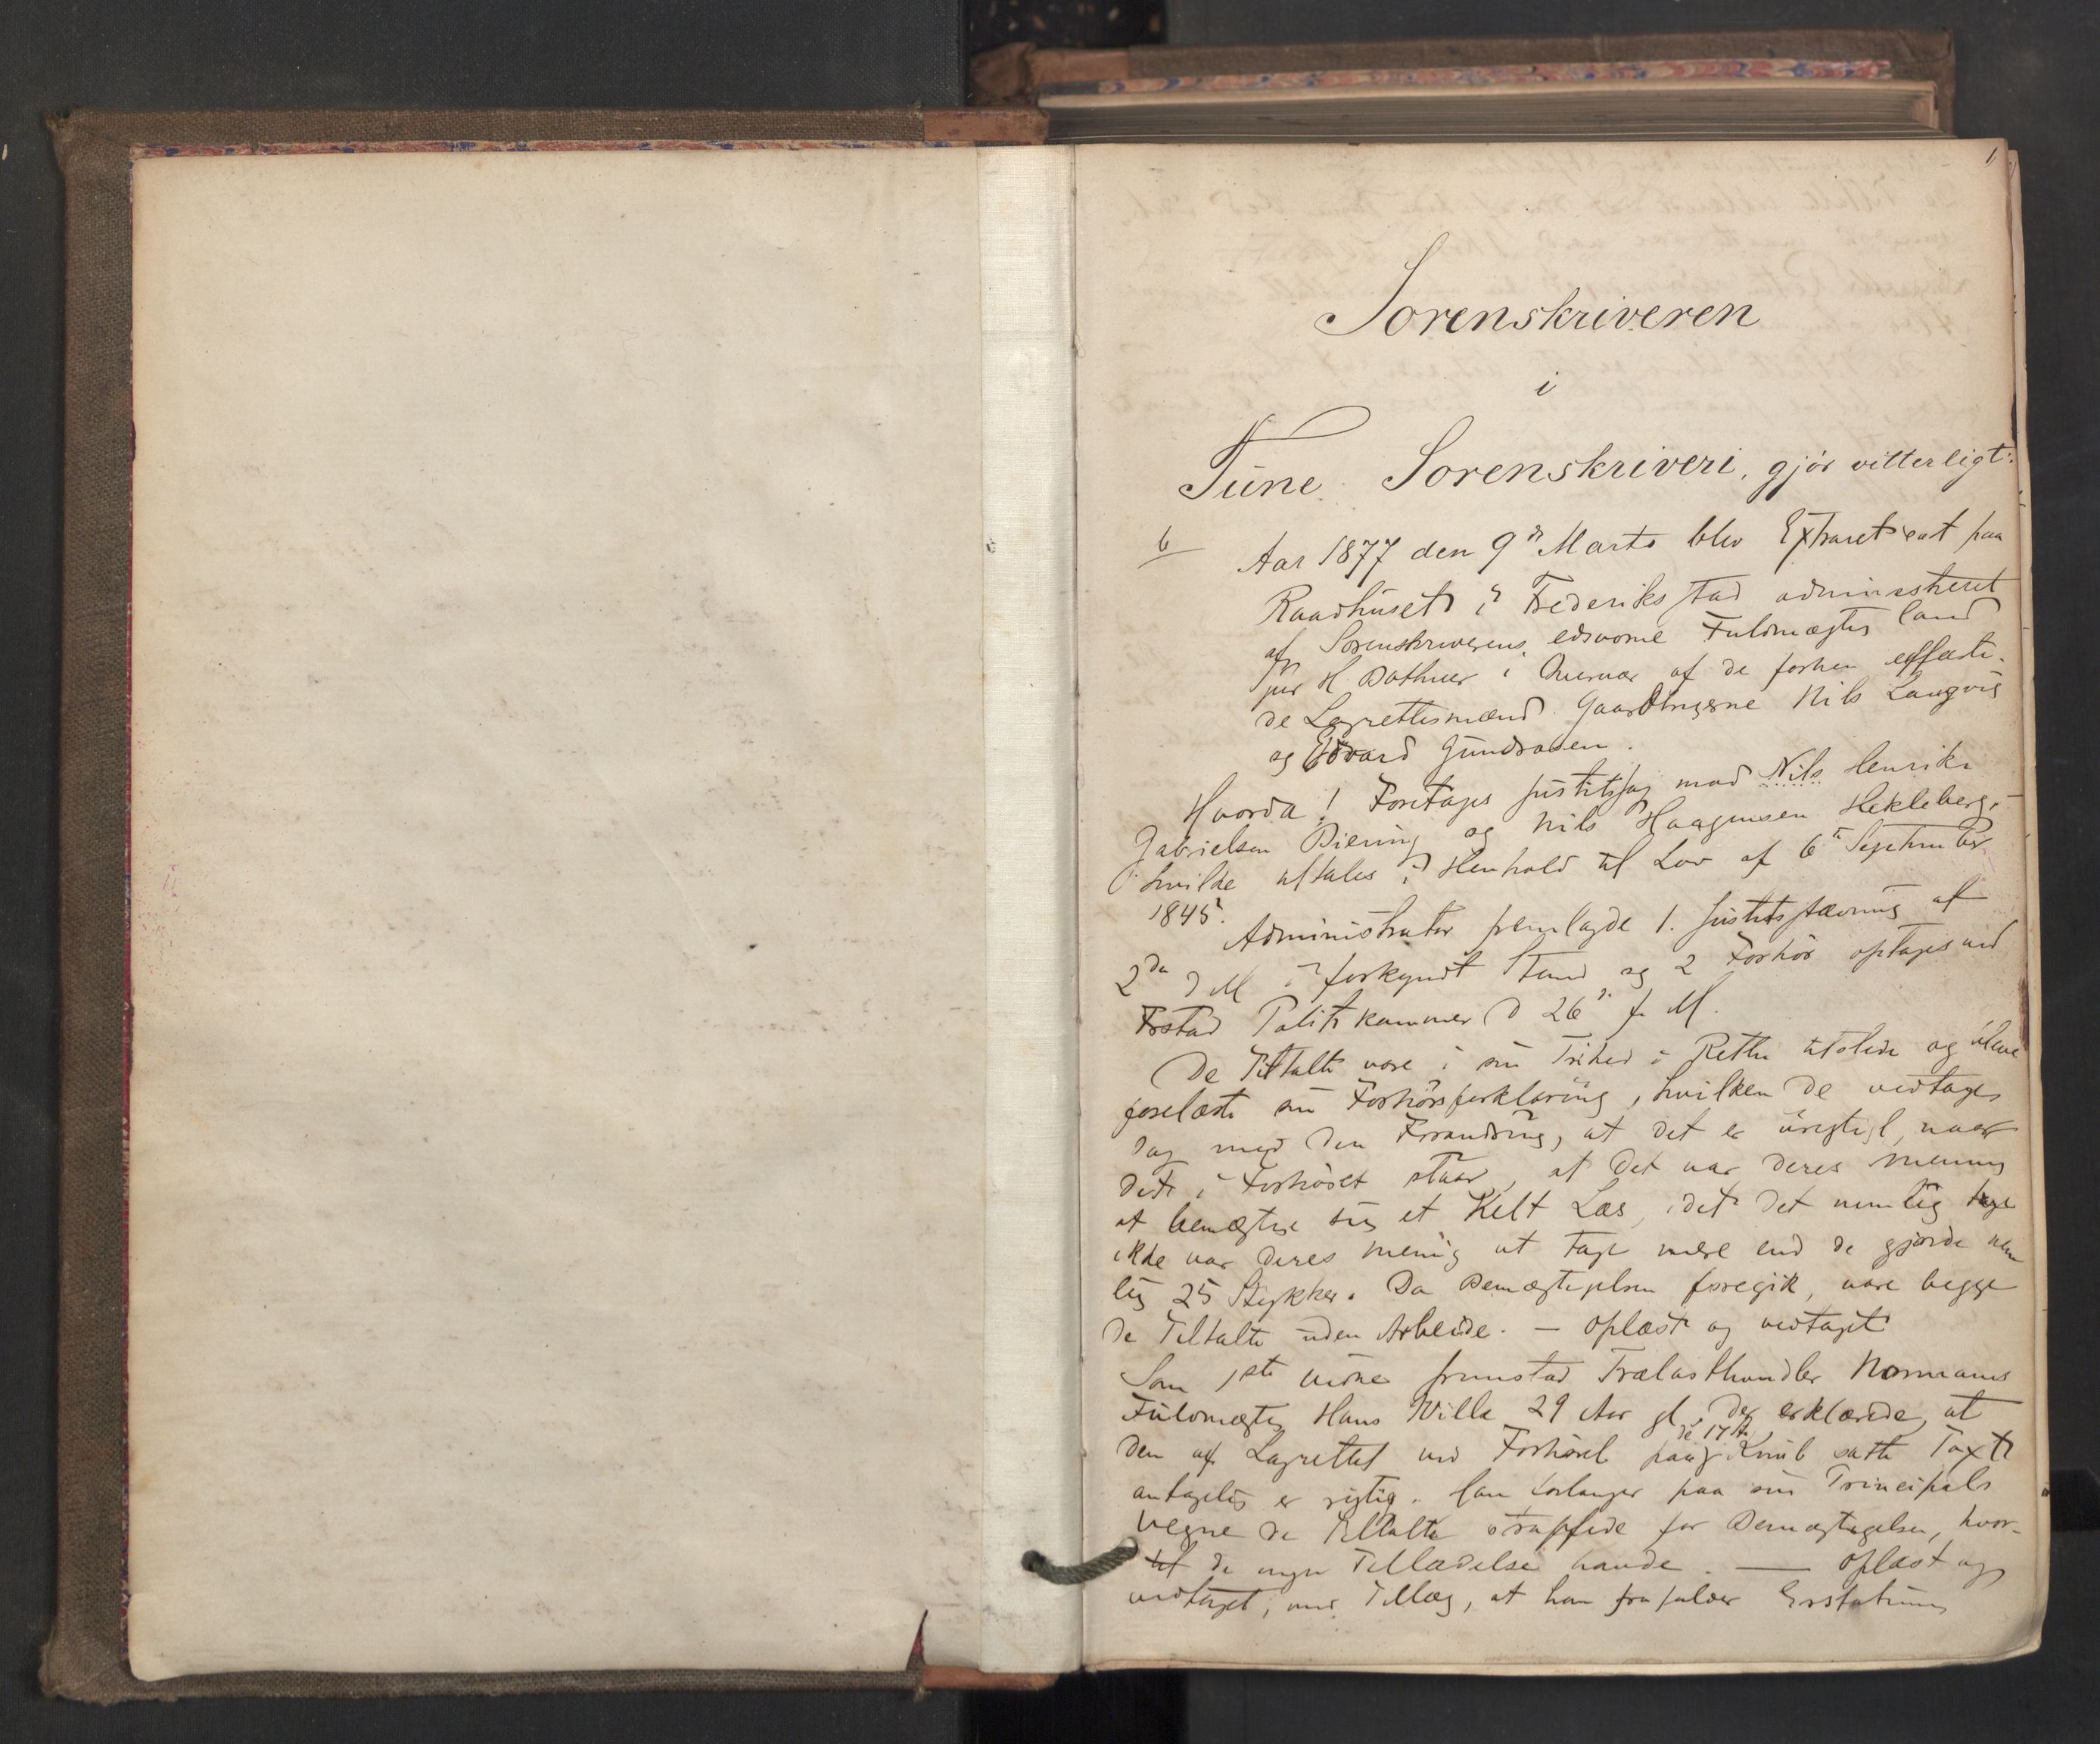 1
Sorenskriveren
i
Tune Sorenskriveri, gjør vitterligt:
6
Aar 1877 den 9d Marts blev Extraret sat paa
Raadhuset i Frederiksstad administreret
af Sorenskriverens edsvorne Fuldmægtig Cand
jur H. i Overvær af de forhen edfæste-
de Lagrettesmænd Gaardbrugerne Nils Langvig
og Edvard Gundrosen.
Hvorda! Foretages Justitssag mod Nils Henrik
Gabrielsen Diering og Nils Haagensen Hekleberg,
hvilke tiltales i Henhold til Lov af 6te September
1845.
Administrator fremlagde 1. Justitsstævning af
2den d M i forkyndt Stand og 2 Forhør optaget ved
Frstad Politikammer d 26d f. M.
De Tiltalte vare i sin Frihed i Rette tilstede og bleve
forelæste sin Forhørsforklaring, hvilken de vedtager
dog med den Forandring, at det er urigtigt, naar
det i Forhøret staar, at det var deres Mening
at bemægtige sig et helt Læs, idet det nemlig
ikke var deres Mening at tage mere end de gjorde nem
lig 25 Stykker. Da Bemægtigelsen foregik, vare begge
de Tiltalte uden Arbeide. — Oplæst og vedtaget
Som 1ste Vidne fremstod Trælasthandler Normanns
Fuldmægtig Hans Wille 29 Aar gl. Der erklærede, at
den af Lagrettet ved Forhøret paa de 17 St. Knub satte Taxt
antagelig er rigtig. Han forlanger paa sin Principals
Vegne de Tiltalte straffede for Bemægtigelsen, hvor-
til de ingen Tilladelse havde. — Oplæst og
vedtaget, med Tillæg, at han frafalder Erstatning